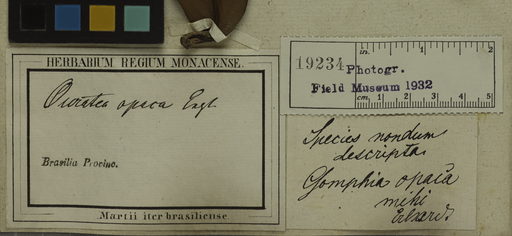 HERBARIUM REGIUM MONACENSE.
Ouratea opaca Engl.
Brasilia Provinc.
Martii iter brasiliense.
in. 1 2
19234
Photogr.
Field Museum 1932
cm. 1 2 3 4 5
Species nondum
descripta
Gomphia opaca
mihi